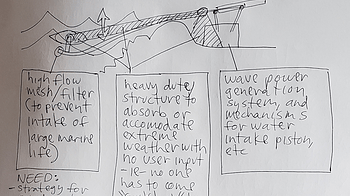 high flow
mesh filter
(to prevent
intake of
large marine
life)
NEED:
- strategy for
heavy duty
structure to
absorb or
accomodate
extreme
weather with
no user input
- ie - no one
has to come
wave power
generation
system, and
mechanisms
for water
intake piston,
etc